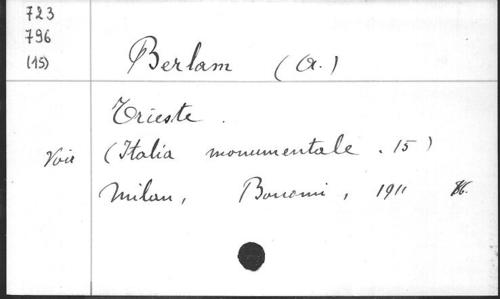 723
796
(15)
Berlam (A.)
Trieste.
Voir (Italia monumentale. 15)
Milan, Bonomi, 1911